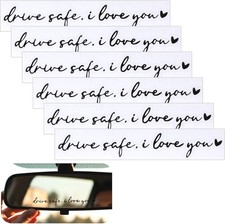 drive safe. i love you♥
drive safe. i love you♥
drive safe. i love you♥
drive safe. i love you♥
drive safe. i love you♥
drive safe. i love you♥
drive safe. i love you♥